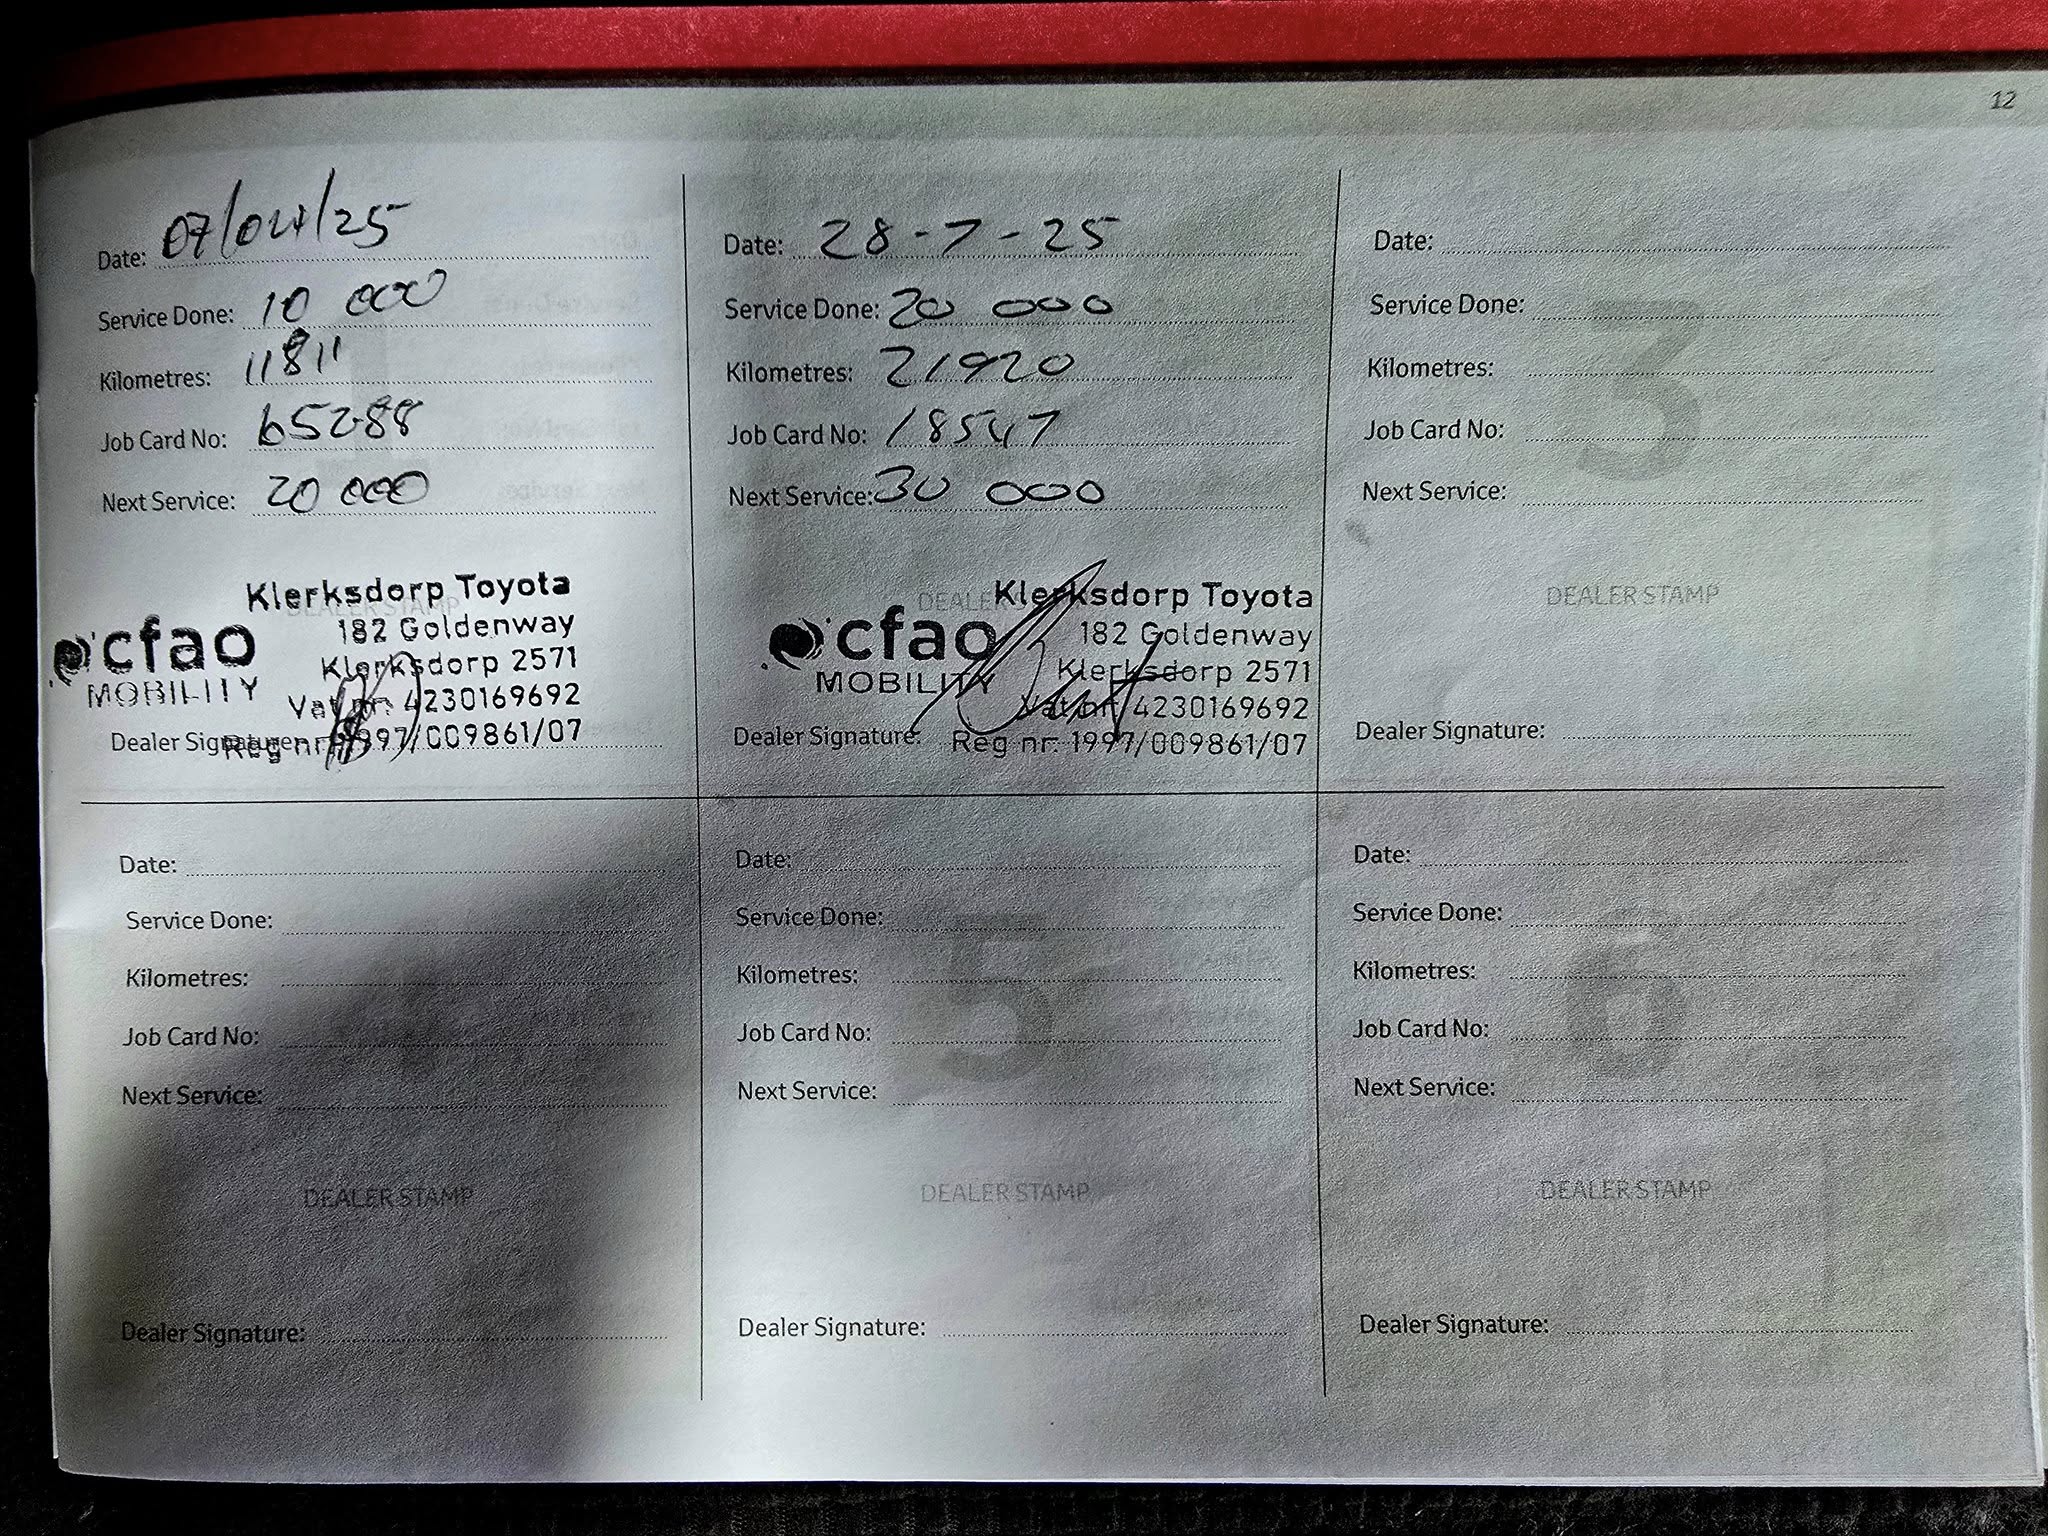 12
Date: 07/04/25
Service Done: 10 000
Kilometres: 11811
Job Card No: 65288
Next Service: 20 000
DEALER STAMP
cfao
MOBILITY
Klerksdorp Toyota
182 Goldenway
Klerksdorp 2571
Vat nr: 4230169692
Reg nr: 1997/009861/07
Dealer Signature:
Date: 28-7-25
Service Done: 20 000
Kilometres: 21920
Job Card No: 18547
Next Service: 30 000
DEALER
cfao
MOBILITY
Klerksdorp Toyota
182 Goldenway
Klerksdorp 2571
Vat nr: 4230169692
Reg nr: 1997/009861/07
Dealer Signature:
3
Date:
Service Done:
Kilometres:
Job Card No:
Next Service:
DEALER STAMP
Dealer Signature:
Date:
Service Done:
Kilometres:
Job Card No:
Next Service:
DEALER STAMP
Dealer Signature:
5
Date:
Service Done:
Kilometres:
Job Card No:
Next Service:
DEALER STAMP
Dealer Signature:
6
Date:
Service Done:
Kilometres:
Job Card No:
Next Service:
DEALER STAMP
Dealer Signature: